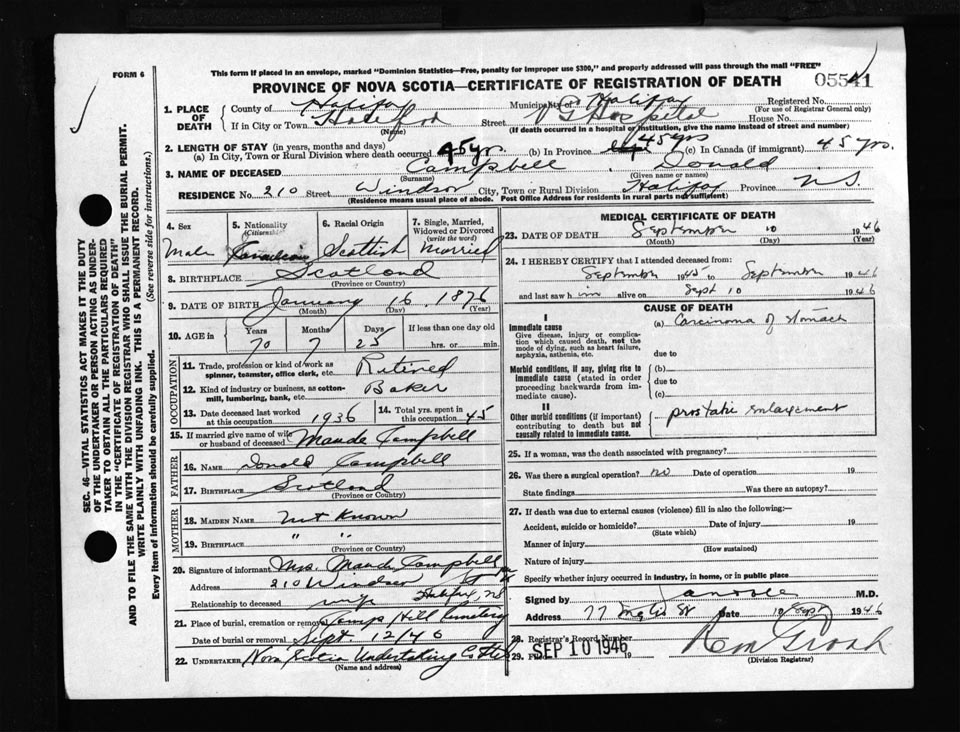 FORM 6
This form if placed in an envelope, marked "Dominion Statistics—Free, penalty for improper use $300," and properly addressed will pass through the mail "FREE"
PROVINCE OF NOVA SCOTIA—CERTIFICATE OF REGISTRATION OF DEATH
05541
1. PLACE OF DEATH
County of Halifax Municipality of Halifax Registered No.
(For use of Registrar General only)
If in City or Town Halifax Street VG Hospital House No.
(Name) (If death occurred in a hospital or institution, give the name instead of street and number)
2. LENGTH OF STAY (in years, months and days)
(a) In City, Town or Rural Division where death occurred 45 yrs. (b) In Province 45 yrs (c) In Canada (if immigrant) 45 yrs.
3. NAME OF DECEASED Campbell, Donald
(Surname) (Given name or names)
RESIDENCE No. 210 Street Windsor City, Town or Rural Division Halifax Province N.S.
(Residence means usual place of abode. Post Office Address for residents in rural parts not sufficient)
4. Sex
Male
5. Nationality (Citizenship)
Canadian
6. Racial Origin
Scottish
7. Single, Married, Widowed or Divorced (write the word)
Married
8. BIRTHPLACE Scotland
(Province or Country)
9. DATE OF BIRTH January 16 1876
(Month) (Day) (Year)
10. AGE in Years Months Days If less than one day old
70 7 25 hrs. or min.
OCCUPATION
11. Trade, profession or kind of work as spinner, teamster, office clerk, etc. Retired
12. Kind of industry or business, as cotton-mill, lumbering, bank, etc. Baker
13. Date deceased last worked at this occupation 1936
14. Total yrs. spent in this occupation 45
15. If married give name of wife or husband of deceased Maude Campbell
FATHER
16. NAME Donald Campbell
17. BIRTHPLACE Scotland
(Province or Country)
MOTHER
18. MAIDEN NAME Not Known
19. BIRTHPLACE " "
(Province or Country)
20. Signature of informant Mrs. Maude Campbell
Address 210 Windsor St
Halifax, NS
Relationship to deceased wife
21. Place of burial, cremation or removal Camp Hill Cemetery
Date of burial or removal Sept. 12/46
22. UNDERTAKER Nova Scotia Undertaking Co Ltd
(Name and address)
MEDICAL CERTIFICATE OF DEATH
23. DATE OF DEATH September 10 1946
(Month) (Day) (Year)
24. I HEREBY CERTIFY that I attended deceased from:
September 1945 to September 1946
and last saw him alive on Sept 10 1946
CAUSE OF DEATH
I
Immediate cause
Give disease, injury or complication which caused death, not the mode of dying, such as heart failure, asphyxia, asthenia, etc.
(a) Carcinoma of Stomach
due to
Morbid conditions, if any, giving rise to immediate cause (stated in order proceeding backwards from immediate cause).
(b)
due to
(c)
II
Other morbid conditions (if important) contributing to death but not causally related to immediate cause.
prostatic enlargement
25. If a woman, was the death associated with pregnancy?
26. Was there a surgical operation? no Date of operation 19
State findings Was there an autopsy?
27. If death was due to external causes (violence) fill in also the following:—
Accident, suicide or homicide? Date of injury 19
(State which)
Manner of injury
(How sustained)
Nature of injury
Specify whether injury occurred in industry, in home, or in public place
Signed by M.D.
Address 77 St Date 10 Sept 1946
28. Registrar's Record Number
29. Filed SEP 10 1946 19
(Division Registrar)
SEC. 46—VITAL STATISTICS ACT MAKES IT THE DUTY
OF THE UNDERTAKER OR PERSON ACTING AS UNDER-
TAKER TO OBTAIN ALL THE PARTICULARS REQUIRED
IN THE "CERTIFICATE OF REGISTRATION OF DEATH"
AND TO FILE THE SAME WITH THE DIVISION REGISTRAR WHO SHALL ISSUE THE BURIAL PERMIT.
WRITE PLAINLY WITH UNFADING INK. THIS IS A PERMANENT RECORD.
Every item of information should be carefully supplied. (See reverse side for instructions.)